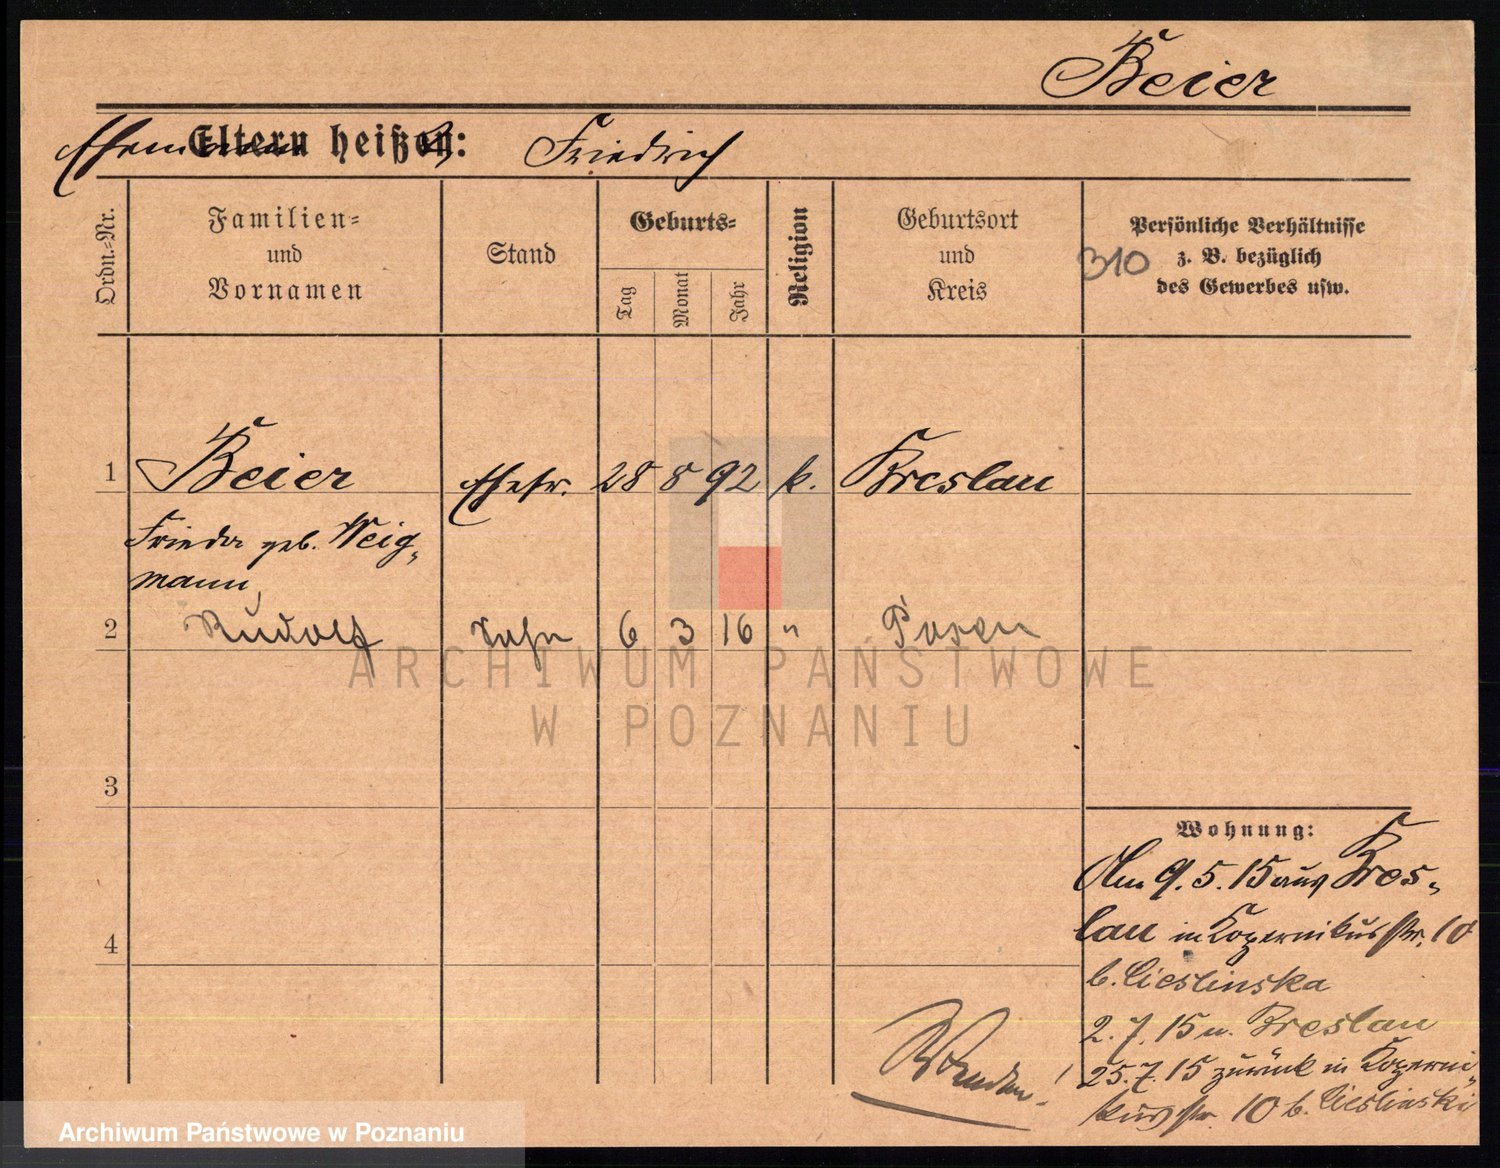 Beier
Ehemann Eltern heißen: Friedrich
Ordn.-Nr.
Familien-
und
Vornamen
Stand
Geburts-
Tag
Monat
Jahr
Religion
Geburtsort
und
Kreis
Persönliche Verhältnisse
z. B. bezüglich
des Gewerbes usw.
310
1 Beier Ehefr. 28 8 92 k. Breslau
Frieda geb. Weig-
mann
2 Rudolf Sohn 6 3 16 " Posen
3
4
Wohnung:
Am 9.5.15 aus Bres-
lau in Kopernikusstr. 10
b. Cieslinska
2.7.15 n. Breslau
25.7.15 zurück in Koperni-
kusstr. 10 b. Cieslinski
Wenden!
ARCHIWUM PAŃSTWOWE
W POZNANIU
Archiwum Państwowe w Poznaniu